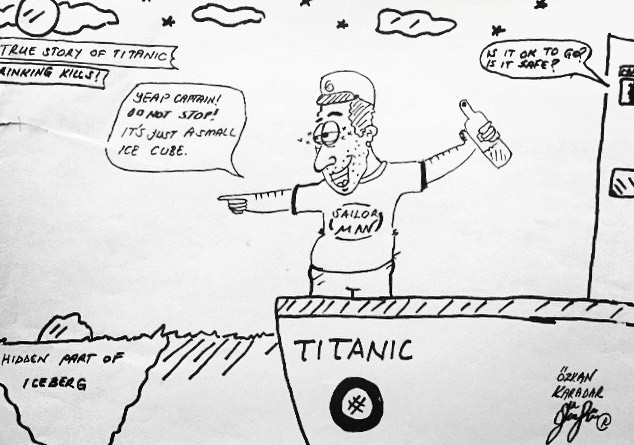 TRUE STORY OF TITANIC
RINKING KILLS!
YEAP CAPTAIN!
DO NOT STOP!
IT'S JUST A SMALL
ICE CUBE.
IS IT OK TO GO?
IS IT SAFE?
SAILOR
MAN
HIDDEN PART OF
ICEBERG
TITANIC
ÖZKAN
KARADAR